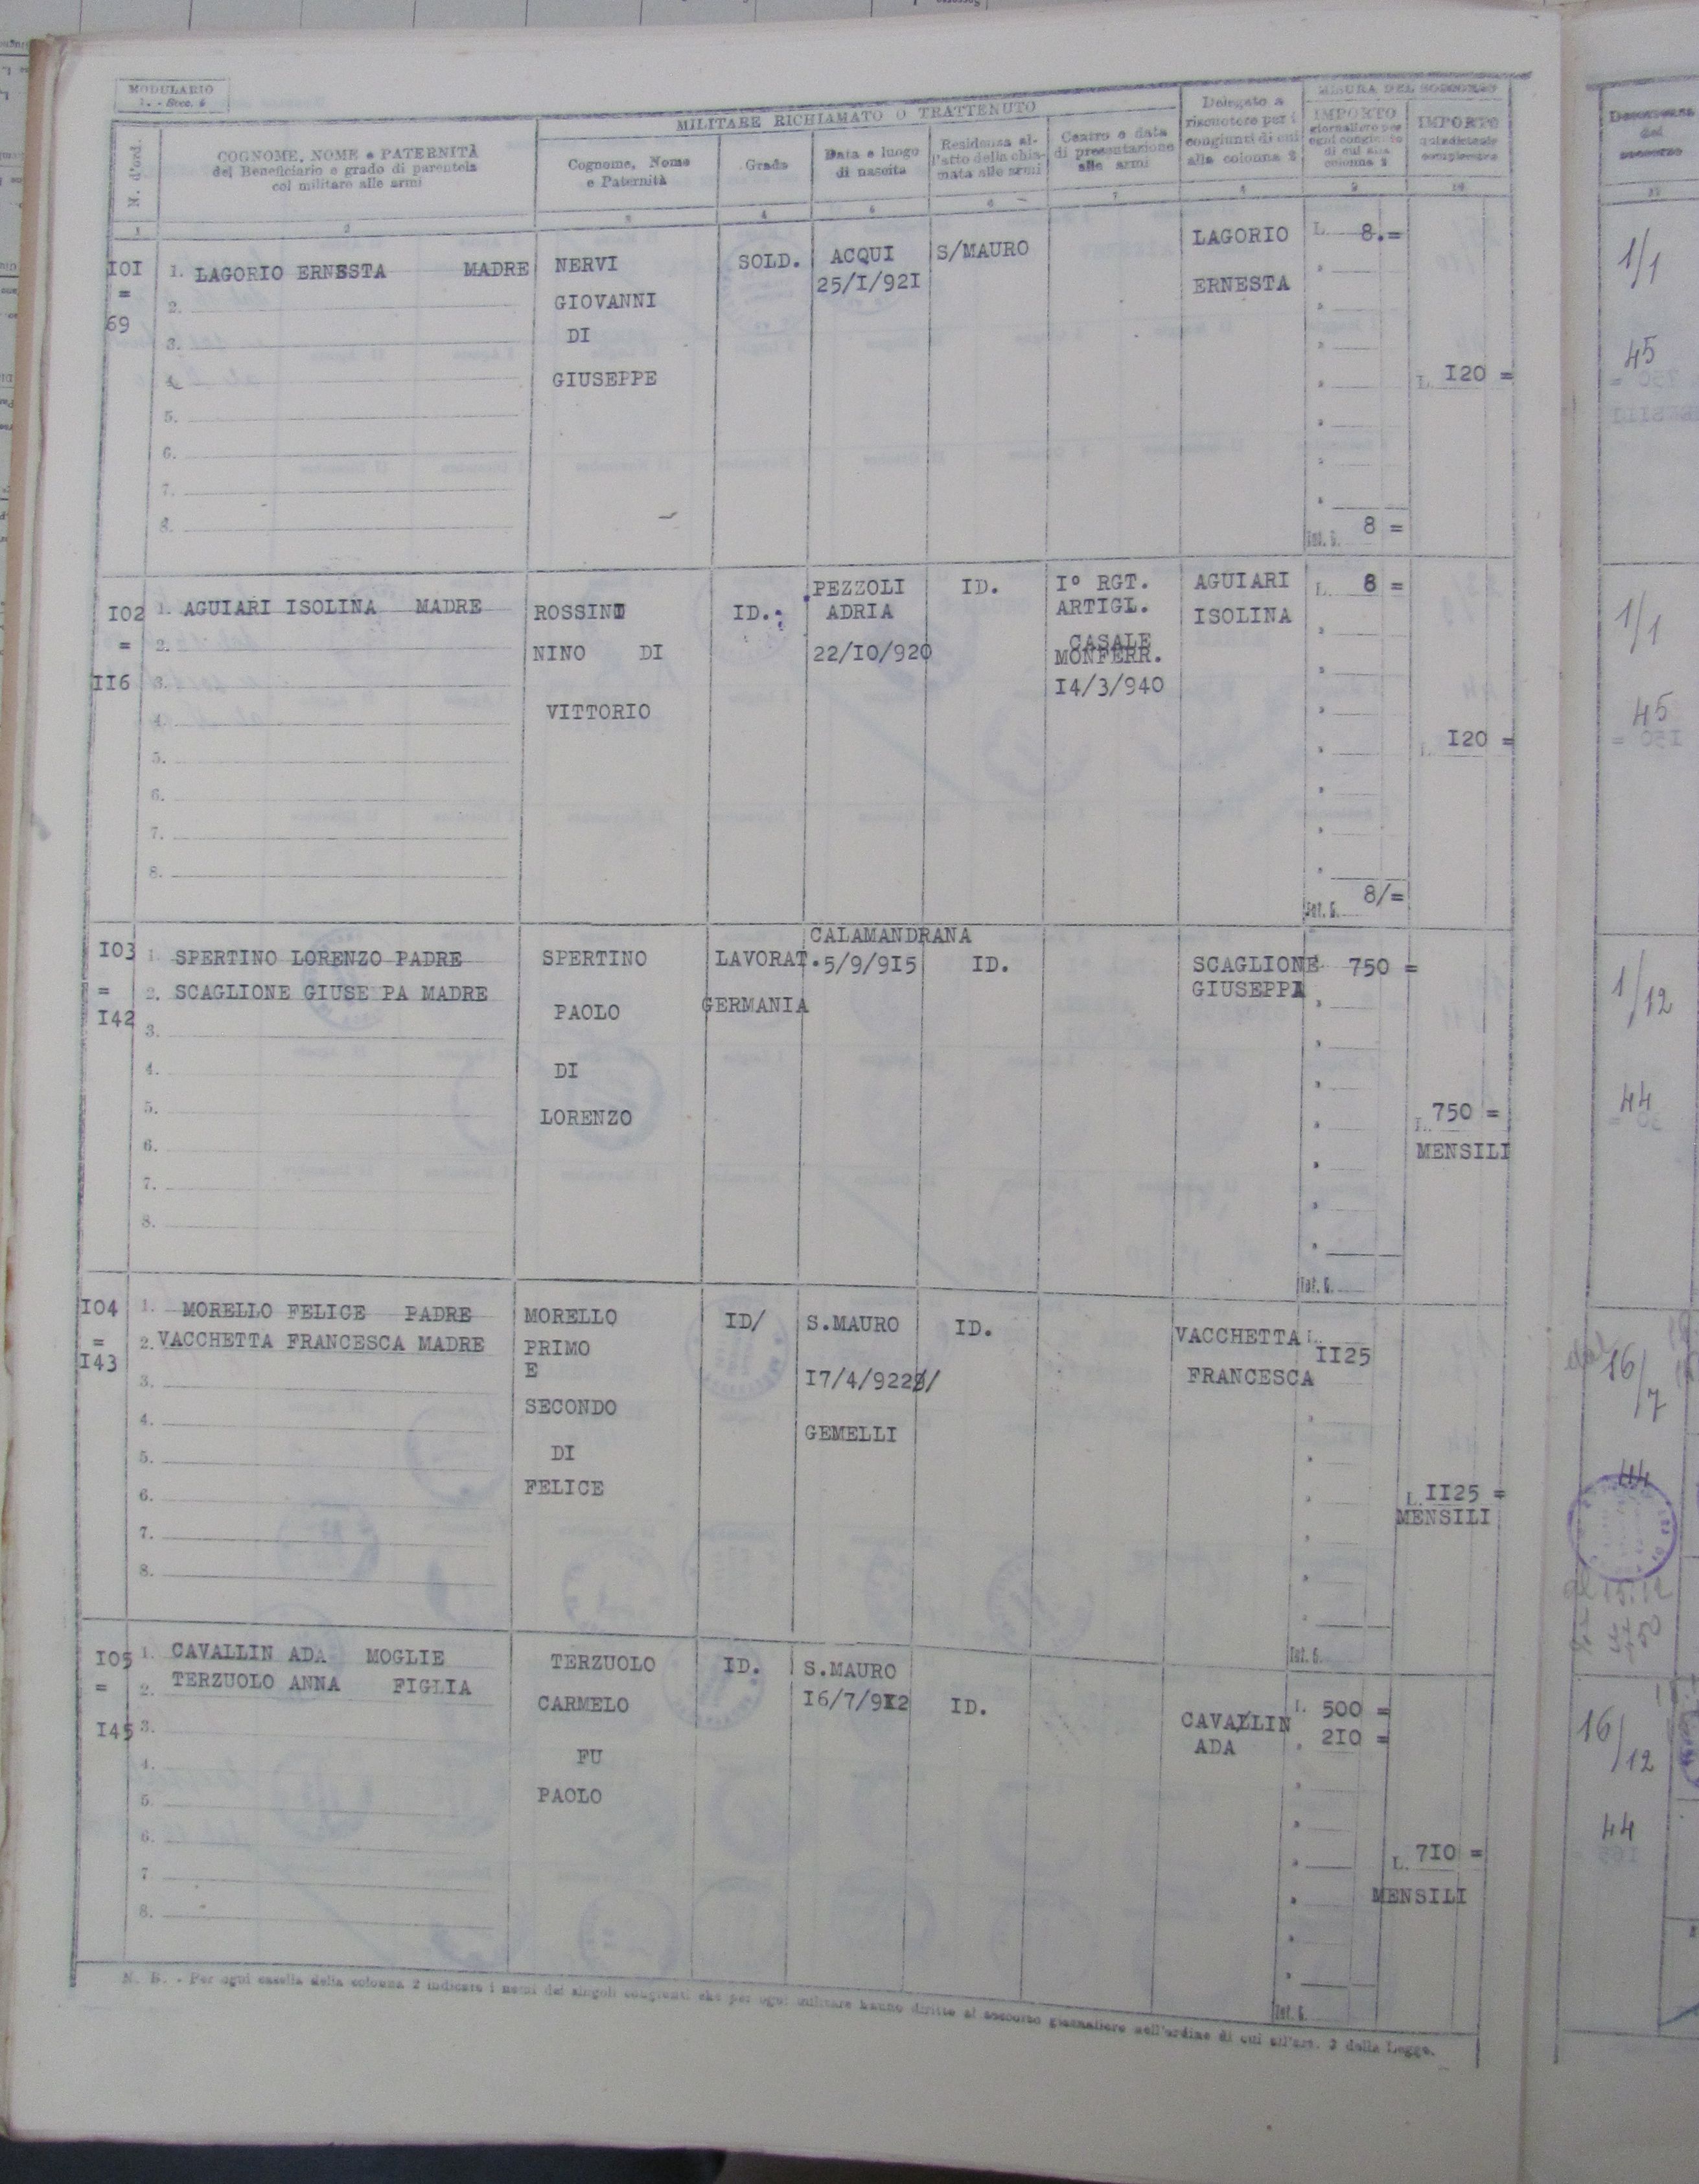 MODULARIO
MILITARE RICHIAMATO O TRATTENUTO
MISURA DEL SOCCORSO
N. d'ord.
COGNOME, NOME e PATERNITÀ
del Beneficiario e grado di parentela
col militare alle armi
Cognome, Nome
e Paternità
Grado
Data e luogo
di nascita
Residenza al-
l'atto della chia-
mata alle armi
Centro e data
di presentazione
alle armi
Delegato a
riscuotere per i
congiunti di cui
alla colonna 2
IMPORTO
giornaliero per
ogni congiunto
di cui alla
colonna 2
IMPORTO
quindicinale
complessivo
Decorrenza
del
soccorso
1 2 3 4 5 6 7 8 9 10 11
I0I
=
69
1. LAGORIO ERNESTA MADRE
2.
3.
4.
5.
6.
7.
8.
NERVI
GIOVANNI
DI
GIUSEPPE
SOLD.
ACQUI
25/I/92I
S/MAURO
LAGORIO
ERNESTA
L. 8.=
Tot. G. 8 =
L. I20 =
1/1
45
I02
=
II6
1. AGUIARI ISOLINA MADRE
2.
3.
4.
5.
6.
7.
8.
ROSSINI
NINO DI
VITTORIO
ID.
PEZZOLI
ADRIA
22/I0/920
ID.
I° RGT.
ARTIGL.
CASALE
MONFERR.
I4/3/940
AGUIARI
ISOLINA
L. 8 =
Tot. G. 8/=
L. I20 =
1/1
45
I03
=
I42
1. SPERTINO LORENZO PADRE
2. SCAGLIONE GIUSE PA MADRE
3.
4.
5.
6.
7.
8.
SPERTINO
PAOLO
DI
LORENZO
LAVORAT.
GERMANIA
CALAMANDRANA
5/9/9I5
ID.
SCAGLIONE
GIUSEPPA
750 =
Tot. G.
L. 750 =
MENSILI
1/12
44
I04
=
I43
1. MORELLO FELICE PADRE
2. VACCHETTA FRANCESCA MADRE
3.
4.
5.
6.
7.
8.
MORELLO
PRIMO
E
SECONDO
DI
FELICE
ID/
S.MAURO
I7/4/922
GEMELLI
ID.
VACCHETTA
FRANCESCA
L.
II25
Tot. G.
L. II25 =
MENSILI
dal 16/7
44
I05
=
I45
1. CAVALLIN ADA MOGLIE
2. TERZUOLO ANNA FIGLIA
3.
4.
5.
6.
7
8.
TERZUOLO
CARMELO
FU
PAOLO
ID.
S.MAURO
I6/7/9I2
ID.
CAVALLIN
ADA
L. 500 =
2I0 =
Tot. G.
L. 7I0 =
MENSILI
16/12
44
N. B. - Per ogni casella della colonna 2 indicare i nomi dei singoli congiunti che per ogni militare hanno diritto al soccorso giornaliero nell'ordine di cui all'art. 2 della Legge.